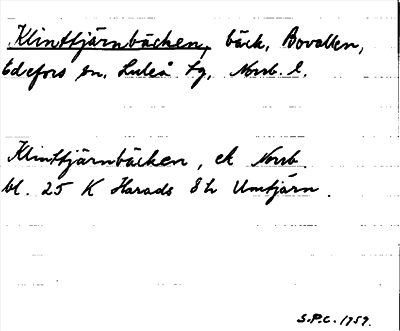 Klinttjärnbäcken, bäck, Bovallen,
Edefors sn, Luleå tg, Norrb. l.
Klinttjärnbäcken, ek Norrb.
bl. 25 K Harads 8 h Umtjärn.
S.P.C. 1959.